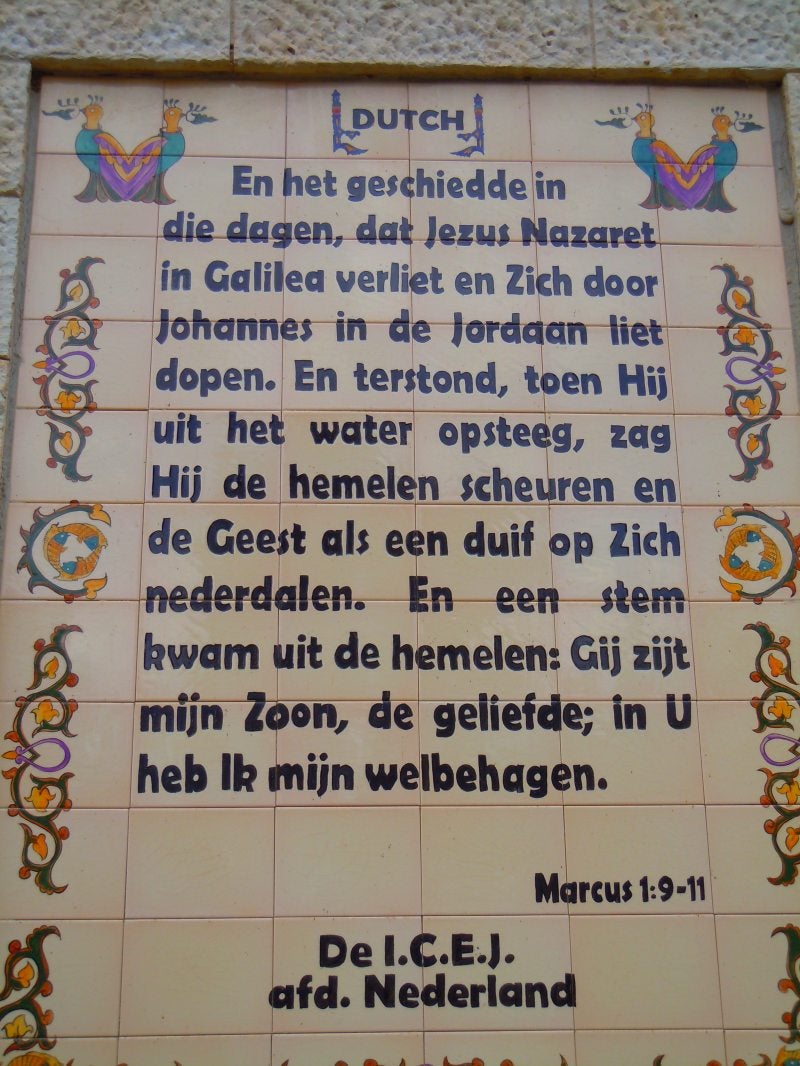 DUTCH
En het geschiedde in
die dagen, dat Jezus Nazaret
in Galilea verliet en Zich door
Johannes in de Jordaan liet
dopen. En terstond, toen Hij
uit het water opsteeg, zag
Hij de hemelen scheuren en
de Geest als een duif op Zich
nederdalen. En een stem
kwam uit de hemelen: Gij zijt
mijn Zoon, de geliefde; in U
heb Ik mijn welbehagen.
Marcus 1:9-11
De I.C.E.J.
afd. Nederland